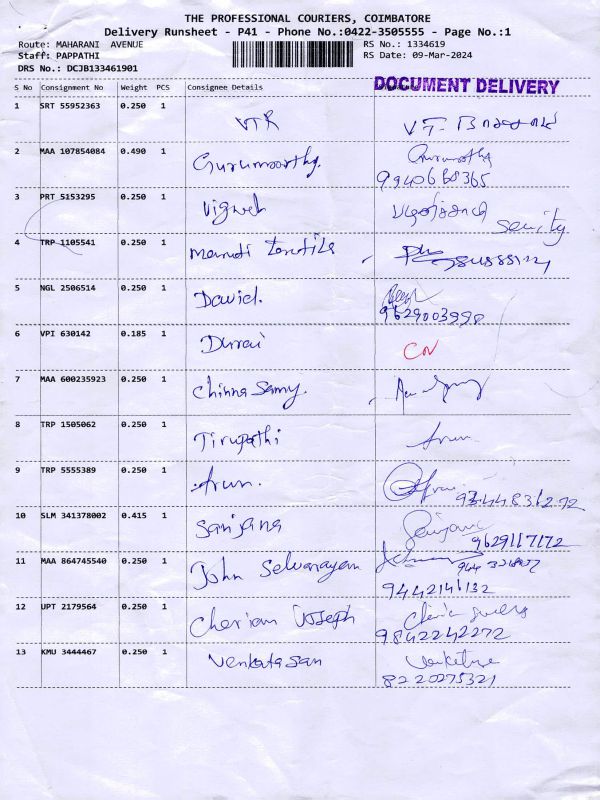 THE PROFESSIONAL COURIERS, COIMBATORE
Delivery Runsheet - P41 - Phone No.:0422-3505555 - Page No.:1
Route: MAHARANI AVENUE RS No.: 1334619
Staff: PAPPATHI RS Date: 09-Mar-2024
DRS No.: DCJB133461901
DOCUMENT DELIVERY
S No Consignment No Weight PCS Consignee Details
1 SRT 55952363 0.250 1 VTR
2 MAA 107854084 0.490 1 Gurumoorthy.
9940668365
3 PRT 5153295 0.250 1 Vignesh
4 TRP 1105541 0.250 1
5 NGL 2506514 0.250 1 David.
9629003998
6 VPI 630142 0.185 1 Durai CN
7 MAA 600235923 0.250 1 Chinna Samy.
8 TRP 1505062 0.250 1 Tirupathi Arun
9 TRP 5555389 0.250 1 Arun.
10 SLM 341378002 0.415 1 Sanjana Sanjana
9629117172
11 MAA 864745540 0.250 1 John Selvanayam
9442146132
12 UPT 2179564 0.250 1 Cherian Joseph
9842242272
13 KMU 3444467 0.250 1 Venkatasan
8220275321